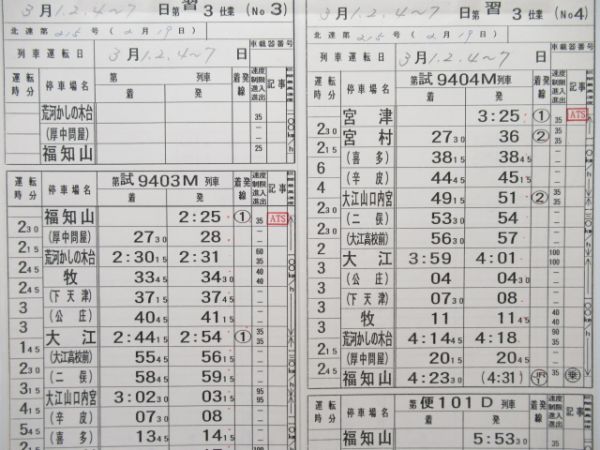 3月1.2.4〜7 日 第 習 3 仕業 (No 3)
北運第 215 号 (2月19日)
列車運転日 3月1.2.4〜7 日 車載器番号
運転時分 停車場名 第 列車 着発線 速度制限 進入進出 記事
着 発
荒河かしの木台 35
(厚中問屋) −
福知山 25
運転時分 停車場名 第試9403M列車 着発線 速度制限 進入進出 記事
着 発
福知山 2:25 ① 35 ATS
2 30
(厚中問屋) 27 30 28
2 15
荒河かしの木台 2:30 15 2:31 60 35
2 45
牧 33 45 34 30 40 40
2 45
(下天津) 37 15 37 45
3
(公庄) 40 45 41 15
3
大江 2:44 15 2:54 ① 35 35
1 45
(大江高校前) 55 45 56 15
2 30
(二俣) 58 45 59 15
3 15
大江山口内宮 3:02 30 03 15 95 95
4 15
(辛皮) 07 30 08
5 45
(喜多) 13 45 14 15
3月1.2.4〜7 日 第 習 3 仕業 (No 4)
北運第 215 号 (2月19日)
列車運転日 3月1.2.4〜7 日 車載器番号
運転時分 停車場名 第試9404M列車 着発線 速度制限 進入進出 記事
着 発
宮津 3:25 ① 35 ATS
2 30
宮村 27 30 36 ② 35 35
2 15
(喜多) 38 15 38 45
6
(辛皮) 44 45 45 15
4
大江山口内宮 49 15 51 ② 35 35
2 30
(二俣) 53 30 54
2 30
(大江高校前) 56 30 57
2
大江 3:59 4:01 100 100
3
(公庄) 04 04 30
3
(下天津) 07 30 08
3
牧 11 11 45
荒河かしの木台 4:14 45 4:18
2 15
(厚中問屋) 20 15 20 45
2 45
福知山 4:23 30 (4:31) 乗
運転時分 停車場名 第便101D列車 着発線 速度制限 進入進出 記事
着 発
福知山 5:53 30